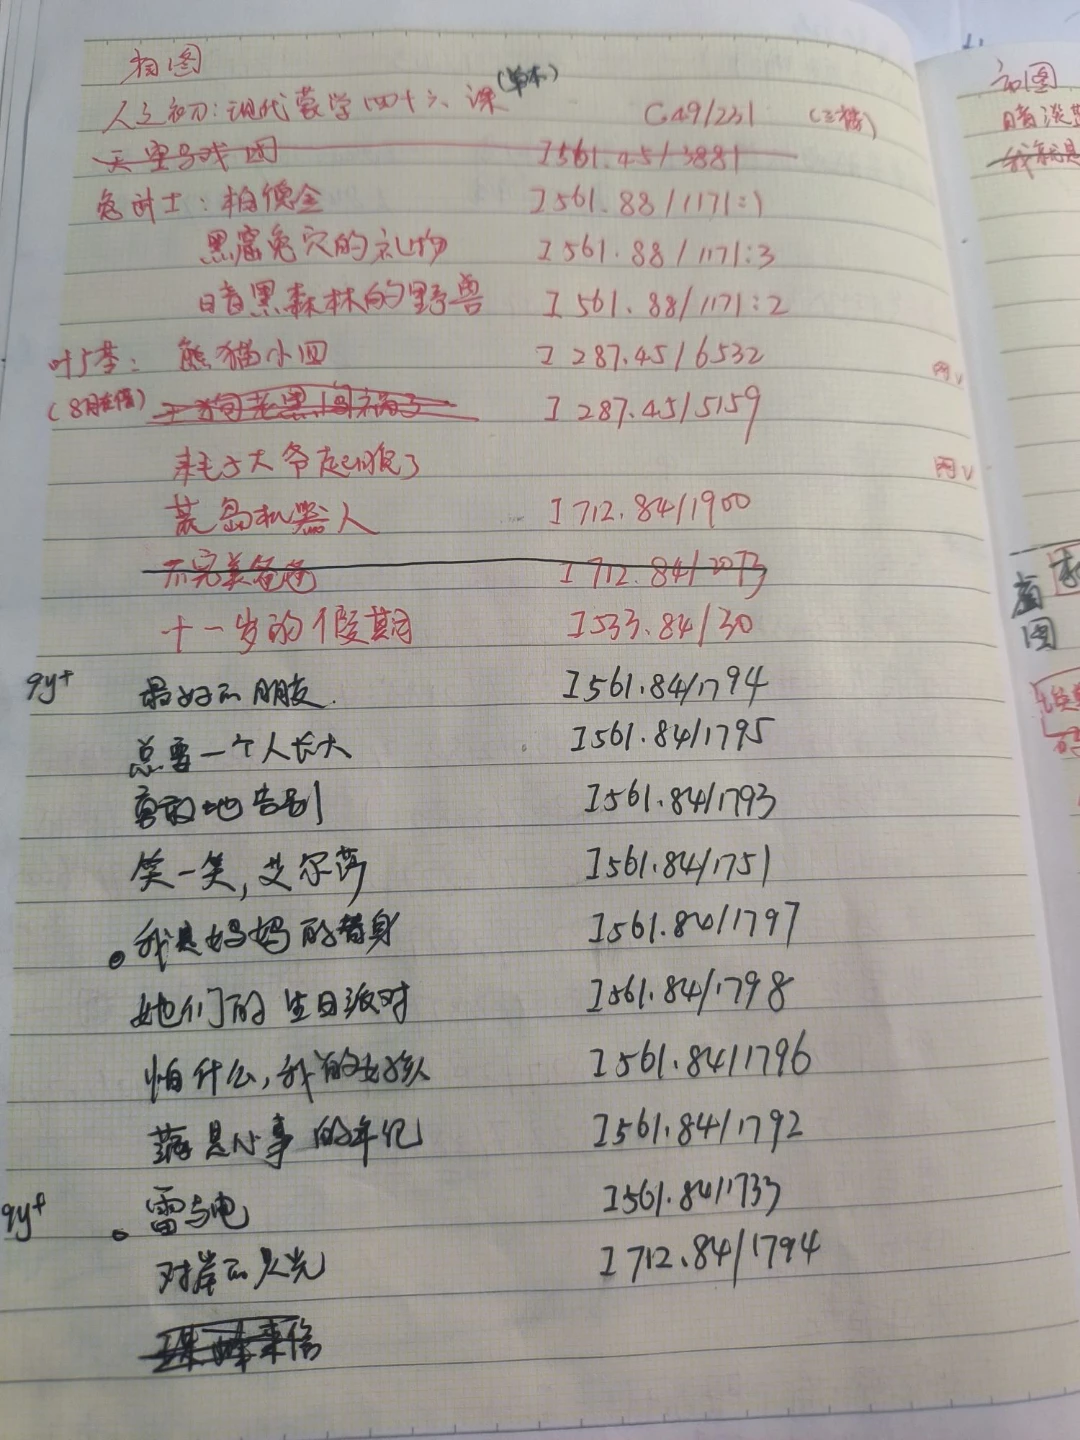 人之初:现代蒙学四十六课(单本) G49/231 (三楼)
天空马戏团 I561.45/3881
兔武士:柏德金 I561.88/1171:1
黑窟兔穴的礼物 I561.88/1171:3
暗黑森林的野兽 I561.88/1171:2
叶广芩: 熊猫小四 I287.45/6532
(8月在借) I287.45/5159
耗子大爷起晚了
荒岛机器人 I712.84/1900
不完美爸爸 I712.84/2073
十一岁的假期 I533.84/30
9y+ 最好的朋友. I561.84/1794
总要一个人长大 I561.84/1795
勇敢地告别 I561.84/1793
笑一笑,艾尔莎 I561.84/1751
我是妈妈的替身 I561.84/1797
她们的生日派对 I561.84/1798
怕什么,我的女孩 I561.84/1796
满是心事的年纪 I561.84/1792
9y+ 雷与电 I561.84/1733
对岸的火光 I712.84/1794
来信